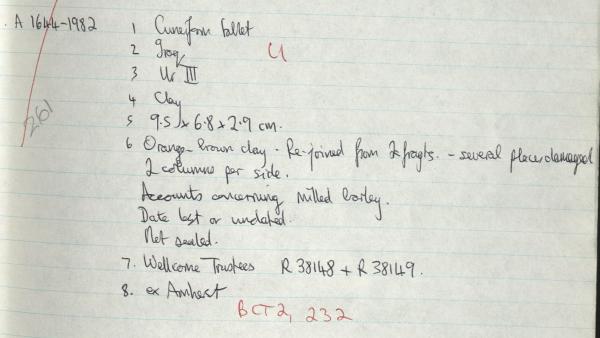 A 1644-1982
1 Cuneiform tablet
2 Iraq
U
3 Ur III
4 Clay
261
5 9.5 x 6.8 x 2.9 cm.
6 Orange-brown clay. Re-joined from 2 fragts. - several places damaged
2 columns per side.
Accounts concerning milled barley.
Date lost or undated.
Not sealed.
7. Wellcome Trustees R 38148 + R 38149.
8. ex Amherst
BCT2, 232